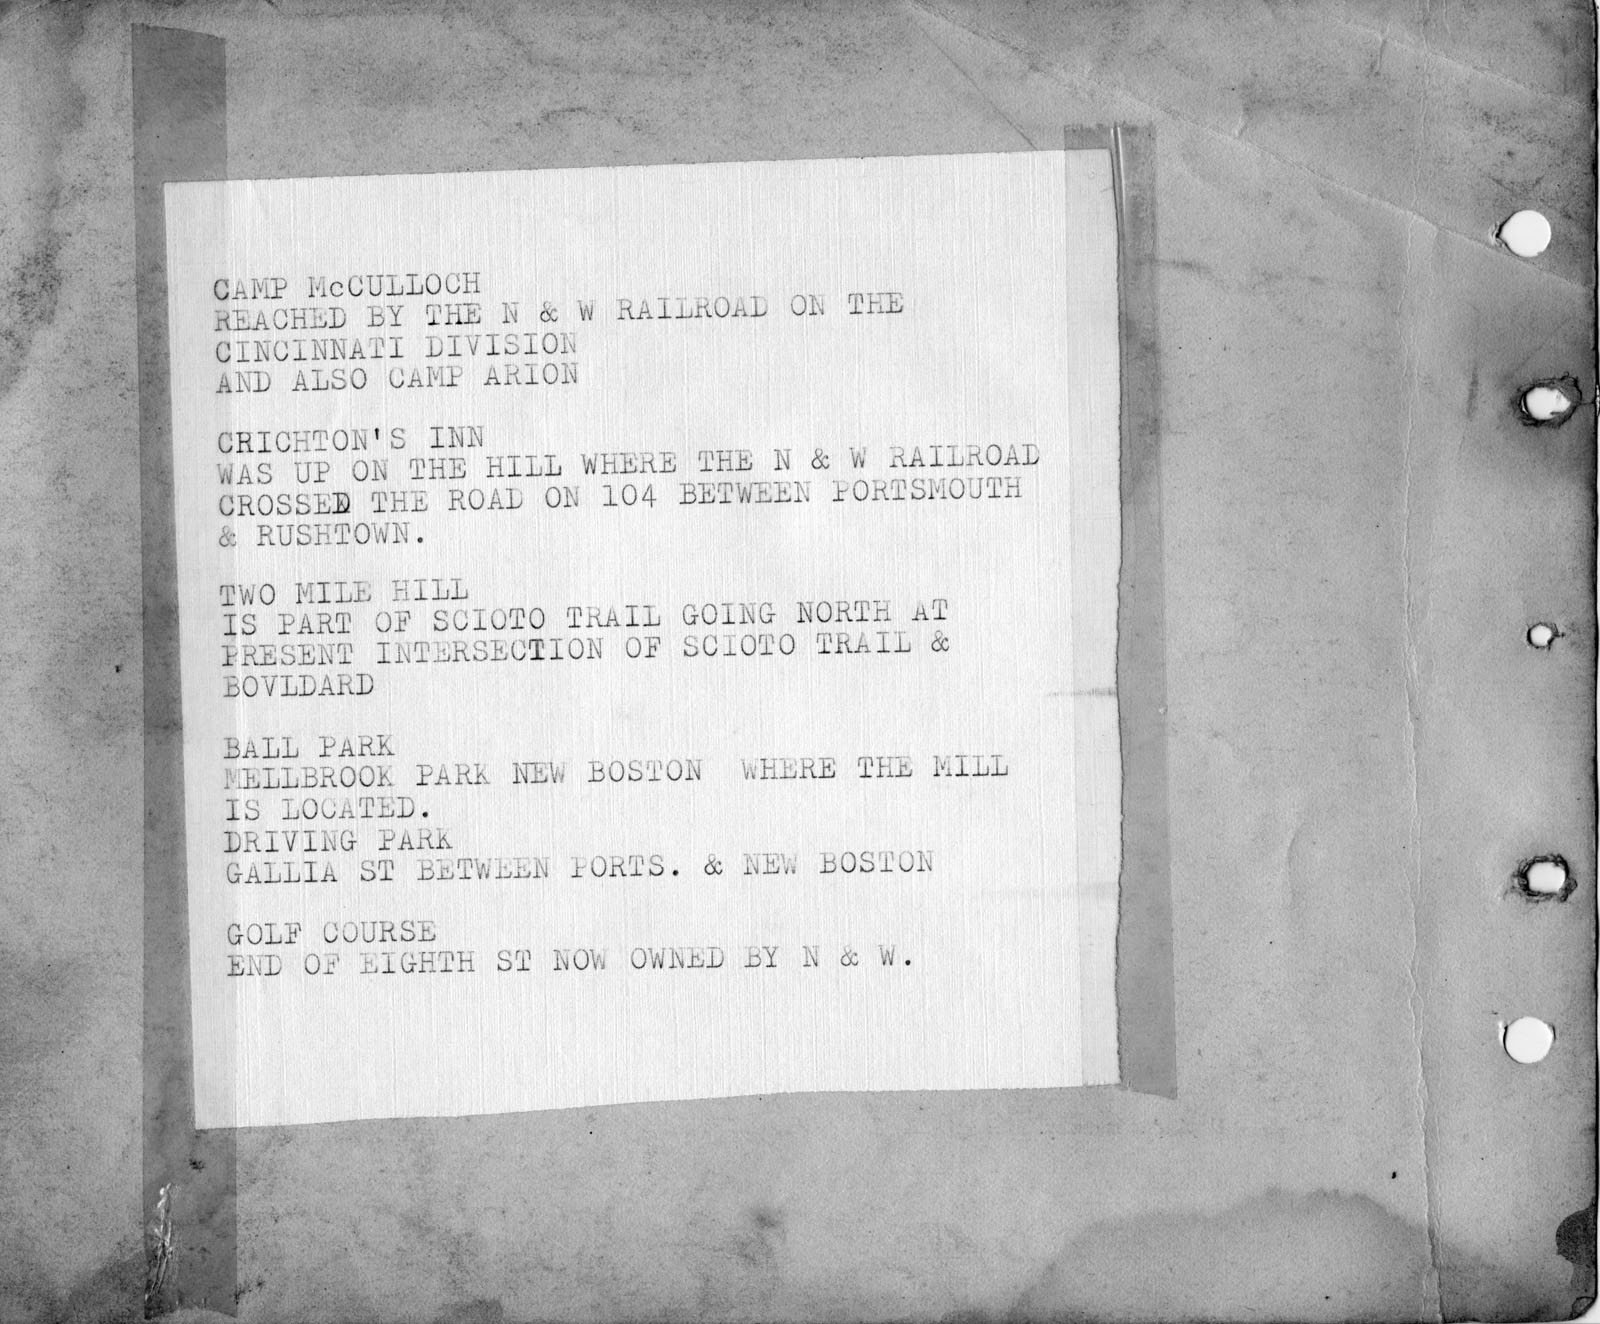 CAMP McCULLOCH
REACHED BY THE N & W RAILROAD ON THE
CINCINNATI DIVISION
AND ALSO CAMP ARION
CRICHTON'S INN
WAS UP ON THE HILL WHERE THE N & W RAILROAD
CROSSED THE ROAD ON 104 BETWEEN PORTSMOUTH
& RUSHTOWN.
TWO MILE HILL
IS PART OF SCIOTO TRAIL GOING NORTH AT
PRESENT INTERSECTION OF SCIOTO TRAIL &
BOVLDARD
BALL PARK
MELLBROOK PARK NEW BOSTON WHERE THE MILL
IS LOCATED.
DRIVING PARK
GALLIA ST BETWEEN PORTS. & NEW BOSTON
GOLF COURSE
END OF EIGHTH ST NOW OWNED BY N & W.